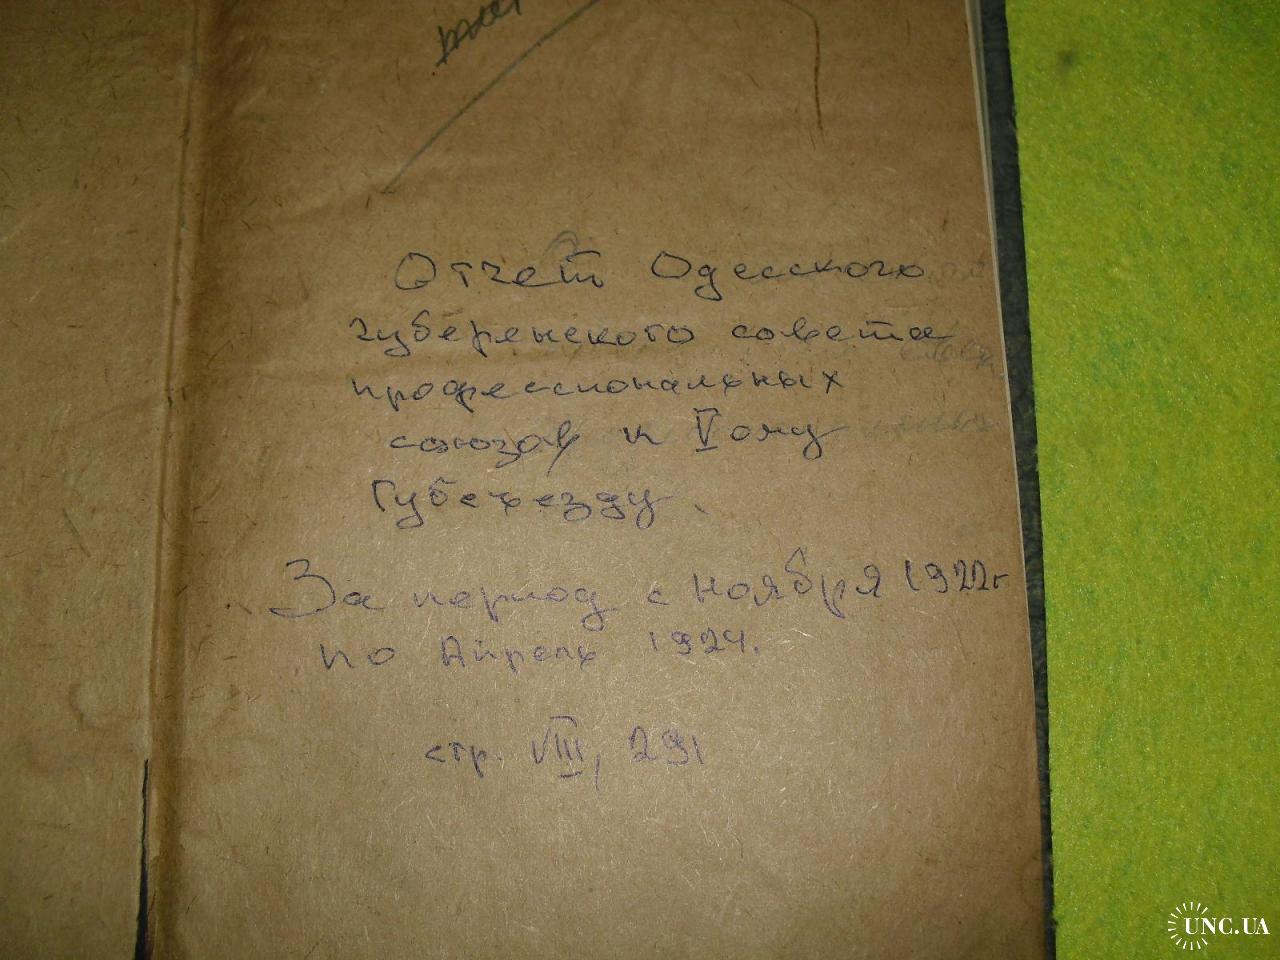 Отчет Одесского
губеренского совета
профессиональных
союзов к V ому
Губсъезду.
За период с ноября 1922 г
по Апрель 1924.
стр. VIII, 291
UNC.UA